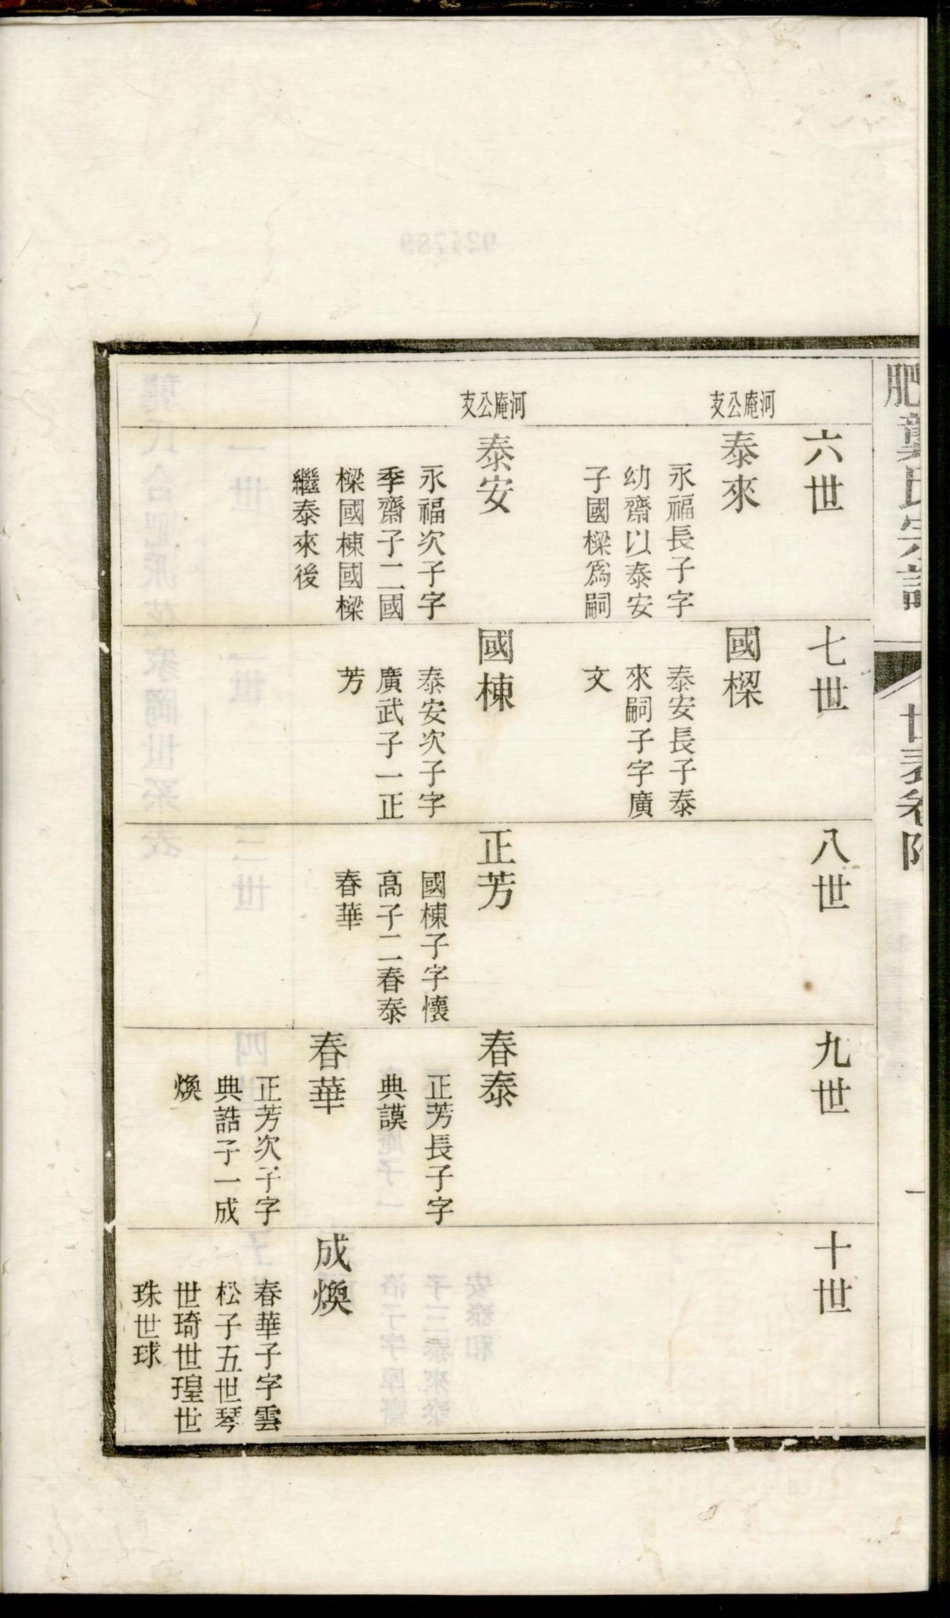 肥龔氏宗譜
世表卷附
一
六世
河庵公支
泰來
永福長子字
幼齋以泰安
子國樑為嗣
河庵公支
泰安
永福次子字
季齋子二國
樑國棟國樑
繼泰來後
七世
國樑
泰安長子泰
來嗣子字廣
文
國棟
泰安次子字
廣武子一正
芳
八世
正芳
國棟子字懷
高子二春泰
春華
九世
春泰
正芳長子字
典謨
春華
正芳次子字
典誥子一成
煥
十世
成煥
春華子字雲
松子五世琴
世琦世瑝世
珠世球